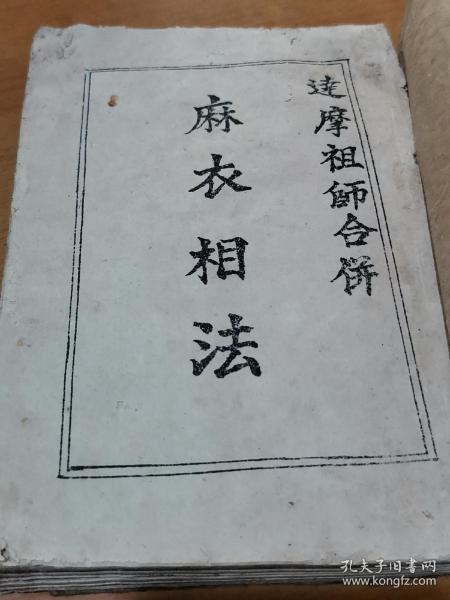 達摩祖師合併
麻衣相法
孔夫子旧书网
www.kongfz.com